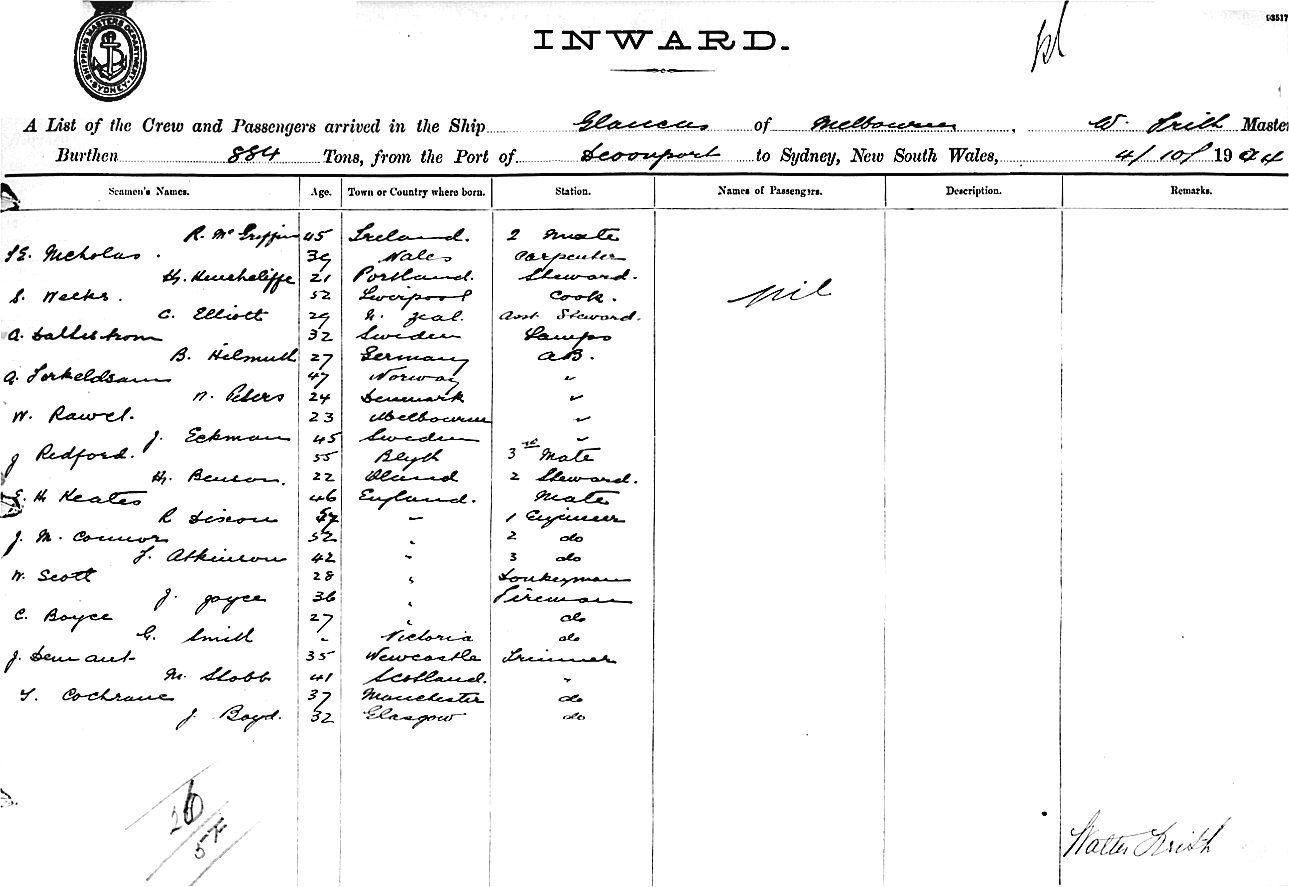 SHIPPING MASTERS DEPARTMENT SYDNEY
93517
INWARD.
A List of the Crew and Passengers arrived in the Ship Glaucus of Melbourne, W. Frith Master
Burthen 884 Tons, from the Port of Devonport to Sydney, New South Wales, 4/10/ 1904
Seamen's Names. Age. Town or Country where born. Station. Names of Passengers. Description. Remarks.
R. McGriffin 45 Ireland. 2 Mate
E. Nicholas. 39 Wales Carpenter
H. Henchcliffe 21 Portland. Steward.
S. Weeks. 52 Liverpool Cook.
Nil
C. Elliott 29 N. Zeal. Asst. Steward.
A. Dallstrom 32 Sweden Lamps
B. Hilmuth 27 Germany AB.
A. Torkeldsam 47 Norway "
N. Peters 24 Denmark "
W. Rawel. 23 Melbourne "
J. Eckman 45 Sweden "
J Redford. 55 Blyth 3rd Mate
H. Benson. 22 Oland 2 Steward.
E. H Keates 46 England. Mate
R Dixon 1 Engineer
J. M. Connor 52 " 2 do
T. Atkinson 42 " 3 do
W. Scott 28 " Donkeyman
J. Joyce 36 " Fireman
C. Boyce 27 " do
G. Smith " Victoria do
J. Demant 35 Newcastle Trimmer
M. Stobb 41 Scotland. "
T. Cochrane 37 Manchester do
J Boyd. 32 Glasgow do
26
Walter Frith